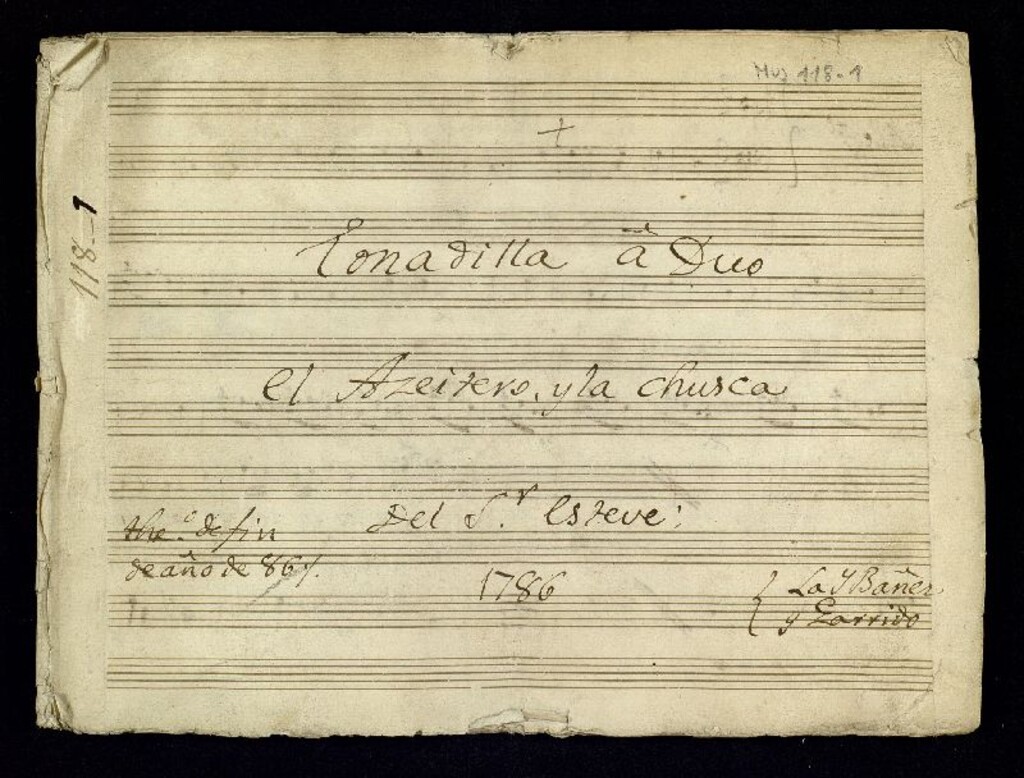 Mus 118-1
+
118-1
Tonadilla â Duo
el Azeitero, y la chusca
Del S.r Esteve;
the.o de fin
de año de 86/.
1786
{ La YBañez
y Garrido